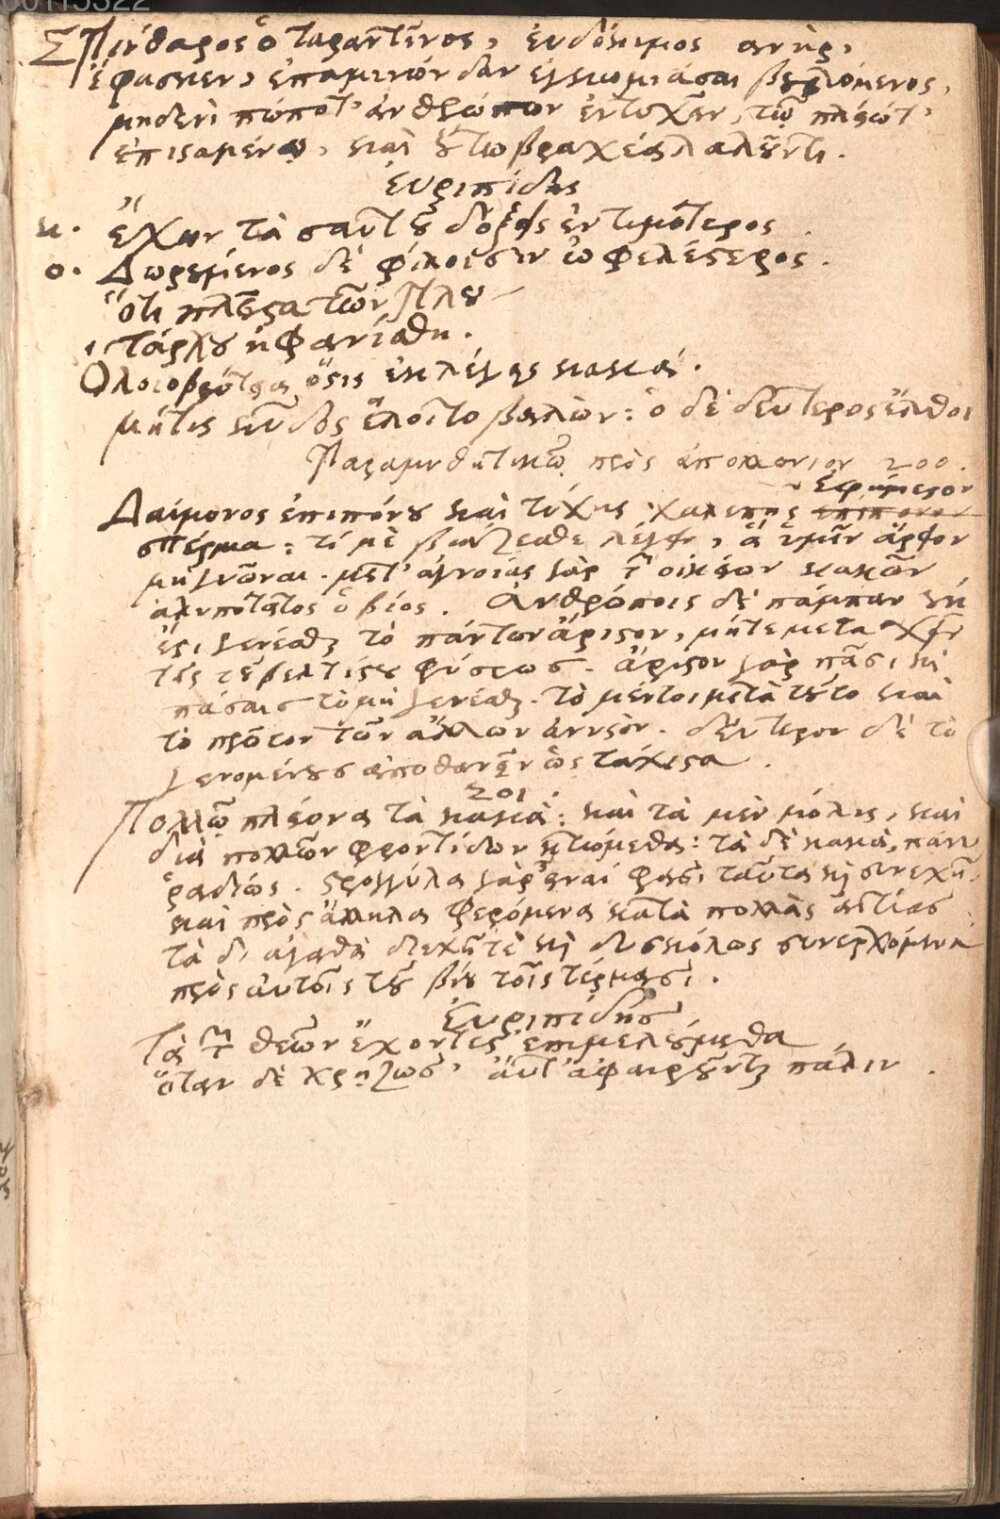 Σπίνθαρος ὁ ταραντῖνος, ἐυδόκιμος ανὴρ,
ἔφασκεν, ἐπαμινώνδαν ἐγκωμιάσαι βουλόμενος,
μηδενὶ πώποτ' ἀνθρώπων ἐντυχεῖν, τῷ πλείωτ'
ἐπισαμένῳ, καὶ οὕτω βραχέα λαλοῦντι.
ἐυριπίδης
κ. ἔχων τὰ σαυτοῦ δόξεις ἐντιμότερος
ο. Δωρεμένος δὲ φίλοισιν ὠφελέστερος.
ὅτι πλεῖστα τῶν Πλου
τάρχου ηφανίσθη.
Ολοιο βροτῶν ὅστις ἐκλέγεις κακά.
μήτις κυνὸς ἕλοιτο βαλών: ὁ δὲ δεύτερος ἔλθοι
Παραμυθητικῷ πρὸς ἀπολλονιον 200.
ἐφήμερον
Δαίμονος ἐπιπόνου καὶ τύχης χαλεπῆς
σπέρμα: τί μὲ βιάζεσθε λέγειν, ἃ ὑμῖν ἄρειον
μὴ γνῶναι. μετ' ἀγνοίας γὰρ τῶν οἰκείων κακῶν
ἀλυπότατος ὁ βίος. ἀνθρόποις δὲ πάμπαν οὐκ
ἔστι γενέσθαι τὸ πάντων ἄριστον, μήτε μετασχεῖν
τῆς τοῦ βελτίστου φύσεως. ἄριστον γὰρ πᾶσι καὶ
πάσαις τὸ μὴ γενέσθαι. τὸ μέντοι μετὰ τοῦτο καὶ
τὸ πρῶτον τῶν ἄλλων ἀνυσὸν. δεύτερον δὲ τὸ
γενομένους αποθανεῖν ὡς τάχιστα.
201.
Πολλῷ πλείονα τὰ κακά: καὶ τὰ μὲν μόλις, καὶ
διὰ πολλῶν φροντίδων κτώμεθα: τὰ δὲ κακὰ, πάνυ
ῥαδίως. στρογγύλα γὰρ εἶναί φασι ταῦτα καὶ συνεχῆ,
καὶ πρὸς ἄλληλα φερόμενα κατὰ πολλὰς αἰτίας
τὰ δ' ἀγαθὰ διεχῆ τὲ καὶ δυσκόλως συνερχόμενα
πρὸς αὐτοῖς τοῦ βίου τοῖς τέρμασι.
Ἐυριπίδης
Τὰ τῶν θεῶν ἔχοντες ἐπιμελούμεθα
ὅταν δὲ χρῄζωσ' ἀῦτ' ἀφαιροῦνται πάλιν.